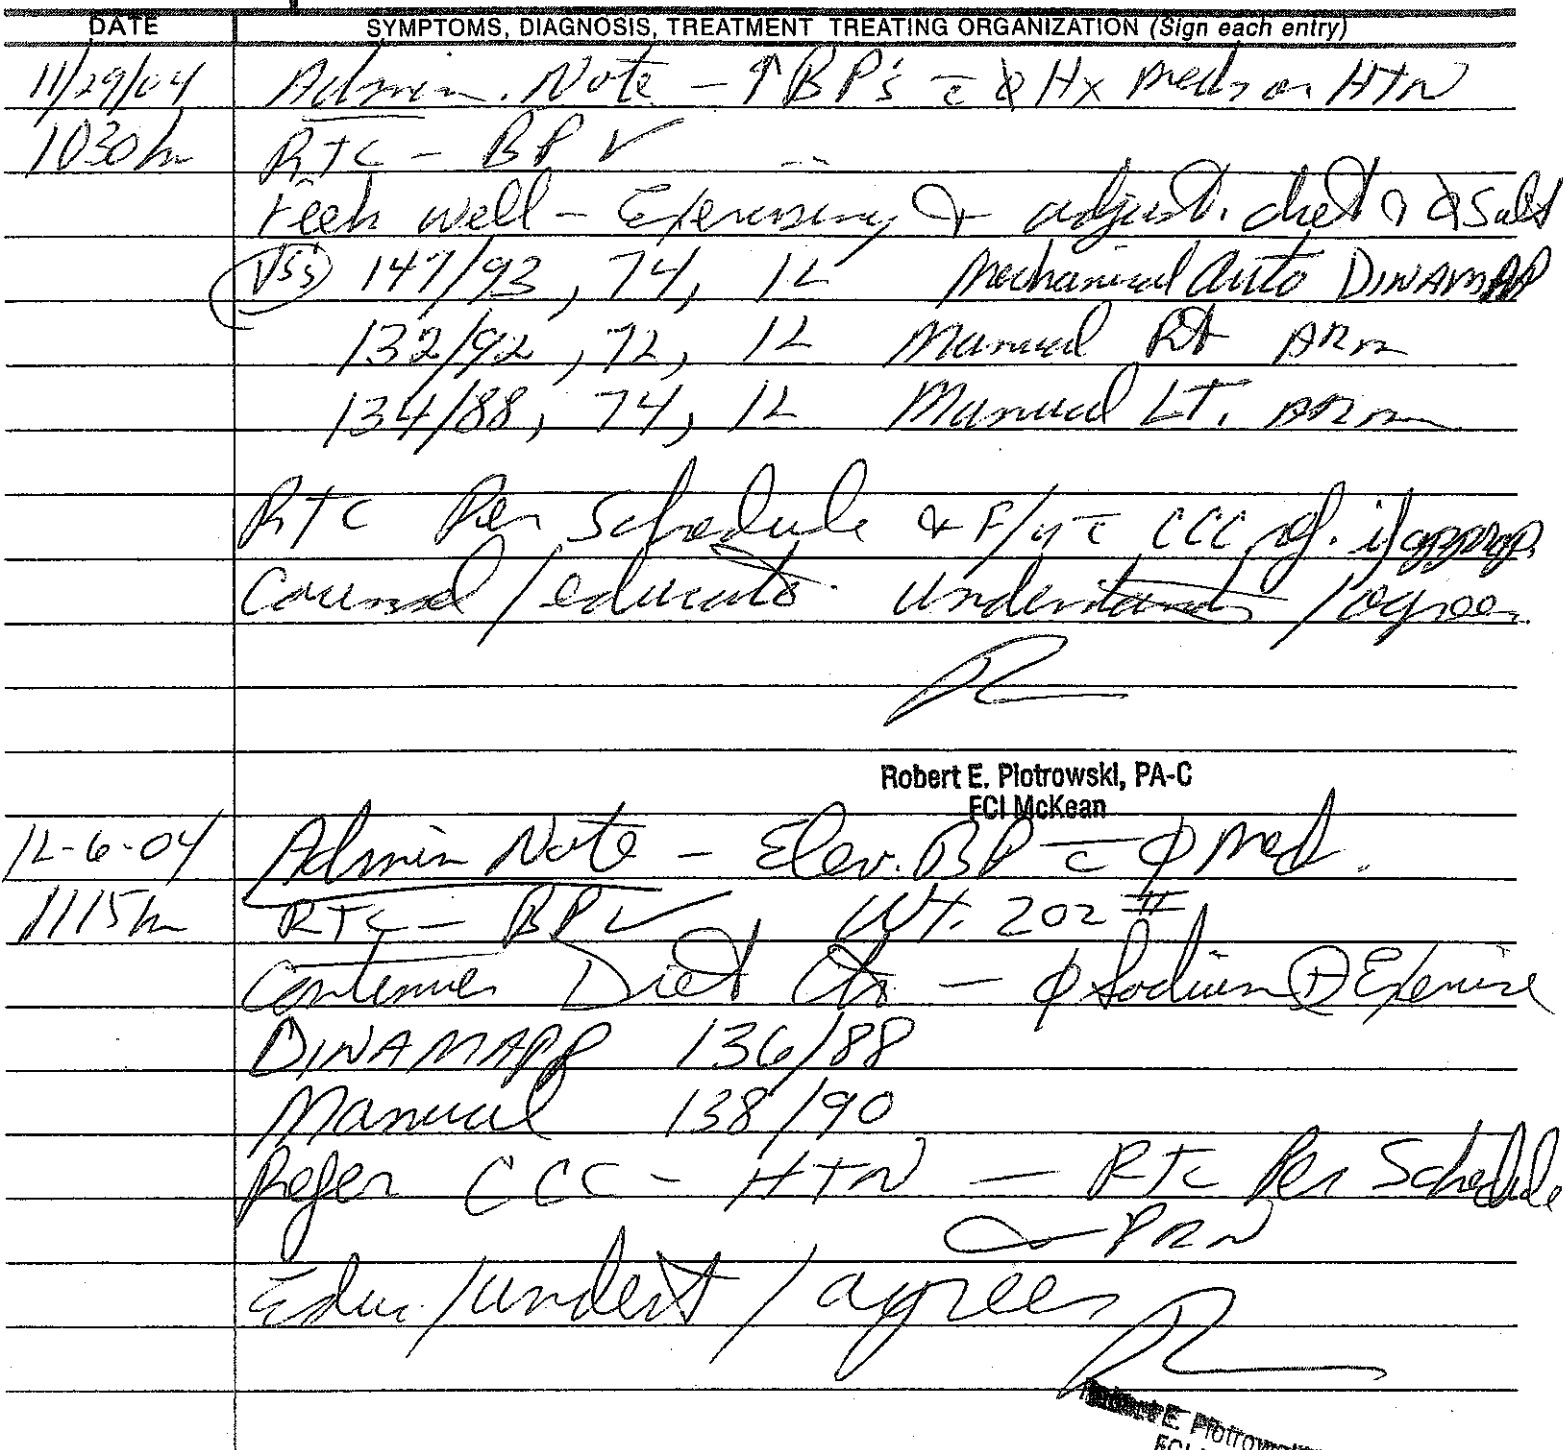 DATE SYMPTOMS, DIAGNOSIS, TREATMENT TREATING ORGANIZATION (Sign each entry)
11/29/04 Admin. Note - ↑BP's c̄ ϕ Hx meds or HTN
1030h RTC - BP ✓
Feels well - Exercising & adjust. diet & ϕ Salt
VS's 147/93, 74, 12 Mechanical Auto DINAMAPP
132/92, 72, 12 Manual Rt ARM
134/88, 74, 12 Manual LT. ARM
RTC Per Schedule & F/u c̄ CCC if approp.
Counsel/educate. understands/agrees
Robert E. Piotrowski, PA-C
FCI McKean
12-6-04 Admin Note - Elev. BP c̄ ϕ med.
1115h RTC - BP ✓ Wt. 202#
Continues Diet - ϕ Sodium ⊕ Exercise
DINAMAPP 136/88
Manual 138/90
Refer CCC - HTN - RTC Per Schedule
PRN
Educ./underst/agrees
E. Piotrowski
FCI